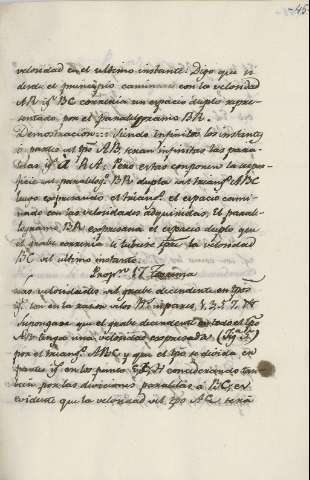 45.
velosidad en el ultimo instante. Digo que si
desde el principio caminara con la velosidad
AR qᵉ BC correria un espacio duplo repre-
sentado por el paralelogramo BR.
Demostracion: Siendo infinitos los instantes
ó partes del tpō AB, seran infinitas las para-
lelas qᵉ á BA. Pero estas componen la super-
ficie del paralelogº BR dupla del triangº ABC
luego expresando el triangº el espacio cami-
nado con las velosidades adquiridas, El paral-
elogramo BR expresara el espacio duplo que
el grabe correria si tubiese la velosidad
BC del ultimo instante.
Propⁿ 5ª Teorema
Las velosidades del grabe decendente en tpōs
qᵉ son en la razon de los Nˢ impares 1, 3, 5, 7, 9
Supongase que el grabe decendente en todo el tpō
AB tenga una velosidad expresada (Fig. 5ª)
por el triangº ABC y que el tpō se divida en
partes qᵉ en los puntos considerando tam-
bien por las diviciones paralelas á BC, es
evidente que la velosidad del tpō AG sera